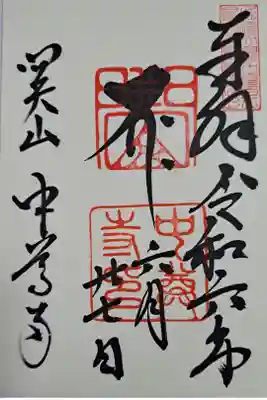 奉拝 令和六年
六月
廿七日
関山 中尊寺
関山
中尊寺印